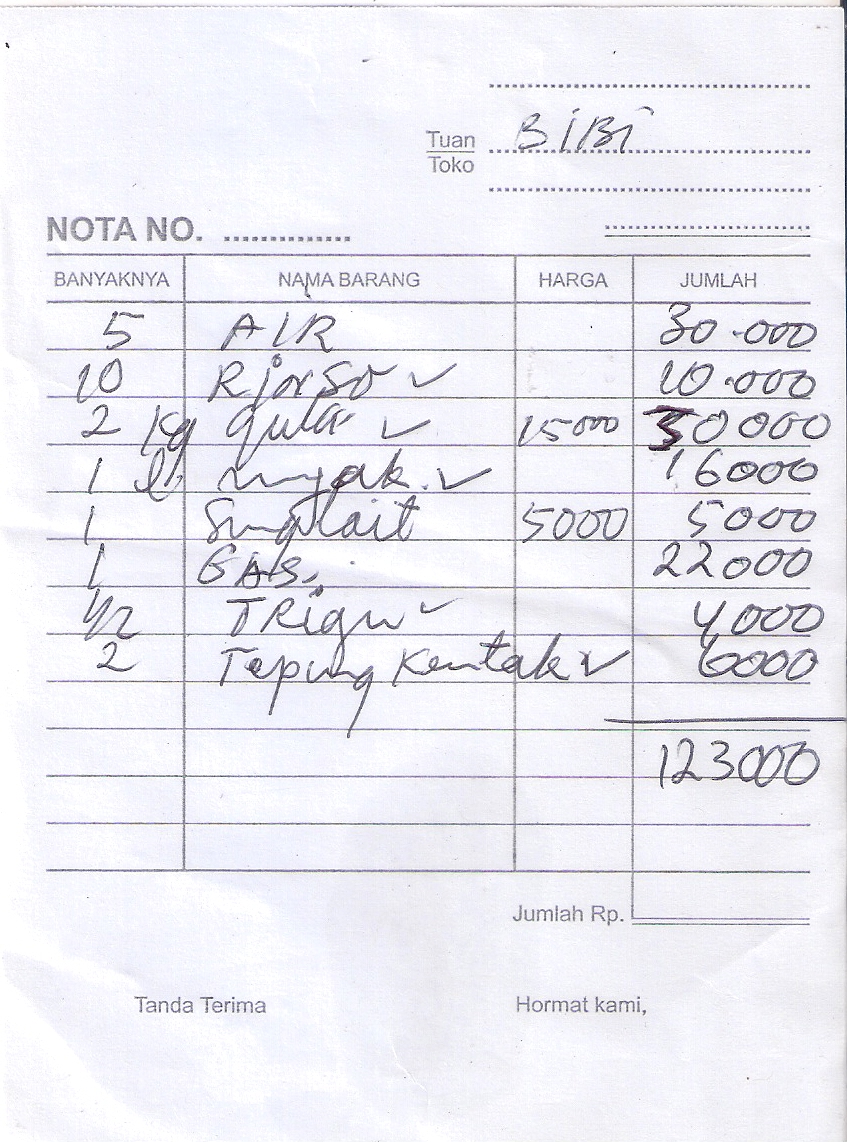 BiBi
Tuan
Toko
NOTA NO.
BANYAKNYA NAMA BARANG HARGA JUMLAH
5 AIR 30.000
10 Rjorso 10.000
2 Kg gula 15000 30000
1 l minyak. 16000
1 Sunlait 5000 5000
1 GAS. 22000
1/2 TRigu 4000
2 Tepung Kentak 6000
123000
Jumlah Rp.
Tanda Terima Hormat kami,